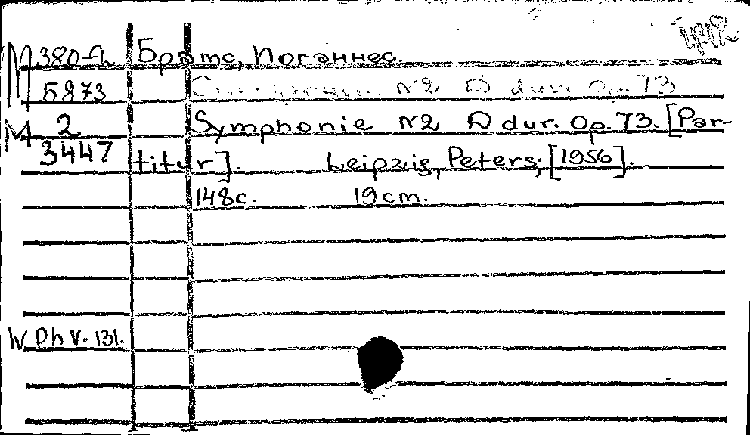 М 380-Л Брамс, Иоганнес
Б873 №2 D dur. Op. 73
М 2 Symphonie №2 D dur. Op. 73. [Par-
3447 titur]. Leipzig, Peters, [1956].
148с. 19 cm.
W. Ph V. 131.